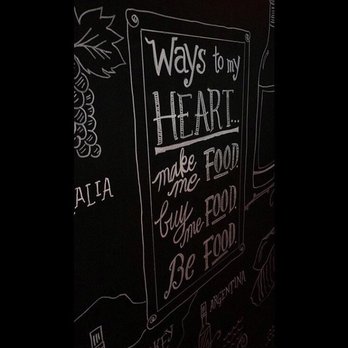 Ways to my
HEART...
make me FOOD.
buy me FOOD.
Be FOOD.
ALIA
KEY
ARGENTINA